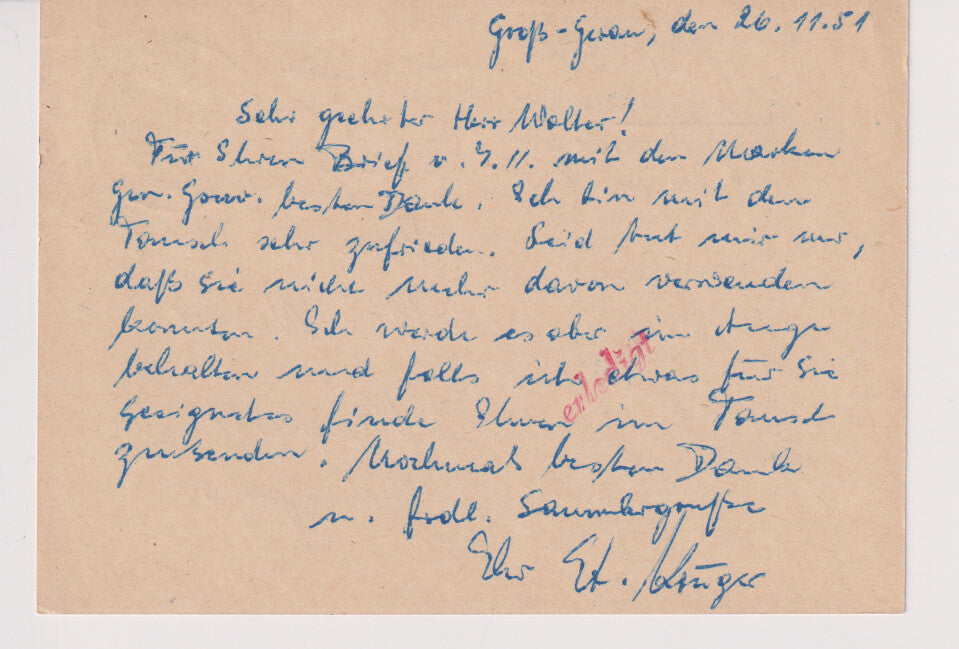 Groß-Gerau, den 26.11.51
Sehr geehrter Herr Walter!
Für Ihren Brief v. 7.11. mit den Marken
Gen. Gouv. besten Dank. Ich bin mit dem
Tausch sehr zufrieden. Leid tut mir nur,
daß Sie nicht mehr davon verwenden
konnten. Ich werde es aber im Auge
behalten und falls ich etwas für Sie
geeignetes finde Ihnen im Tausch
zusenden. Nochmals besten Dank
u. frdl. Sammlergrüße
Ihr
erledigt